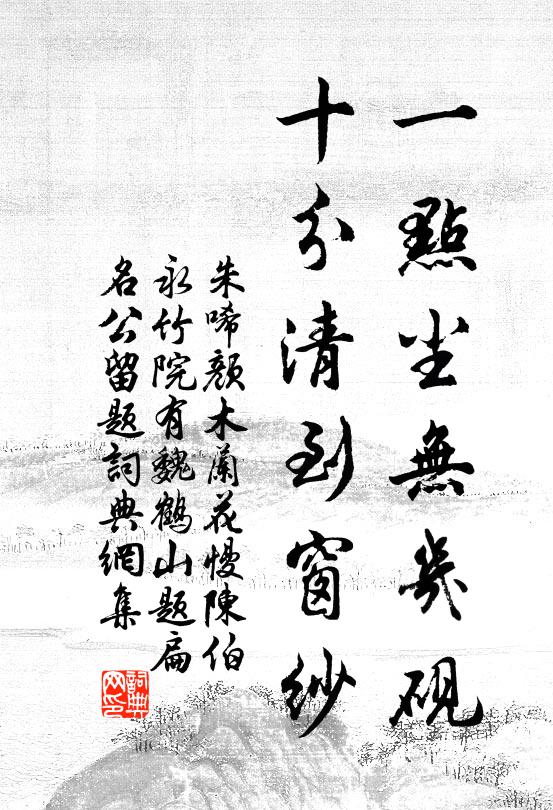 一點尘無幾硯
十分清到窗紗
朱唏顔木蘭花慢陳伯
永竹院有魏鶴山题扁
名公留题詞典網集
詞典网印